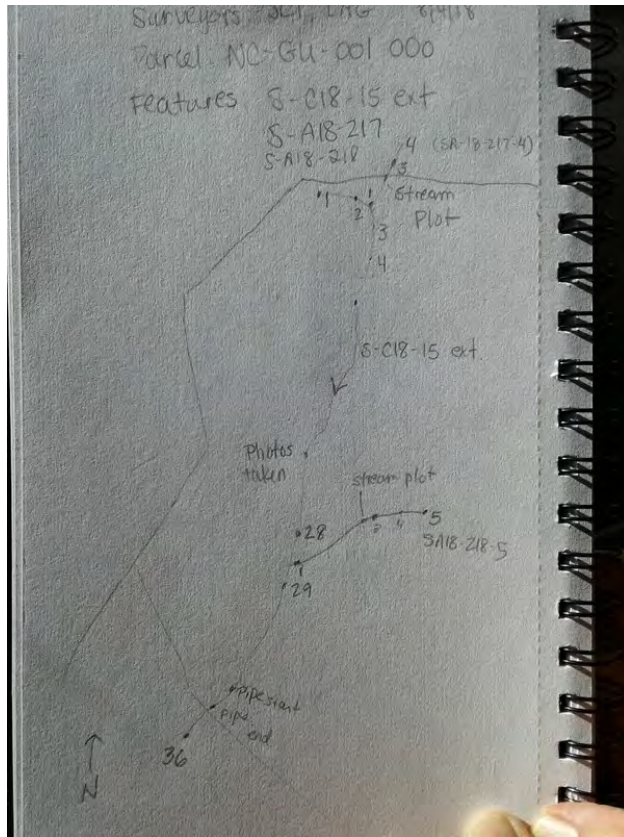 Surveyors JLT, LHG 8/4/18
Parcel: NC-GU-001 000
Features S-C18-15 ext
S-A18-217
S-A18-218
4 (SA-18-217-4)
3
1
2
1
Stream
Plot
3
4
S-C18-15 ext.
Photos
taken
stream plot
28
2
4
5
SA18-218-5
1
29
pipe start
pipe
end
36
N